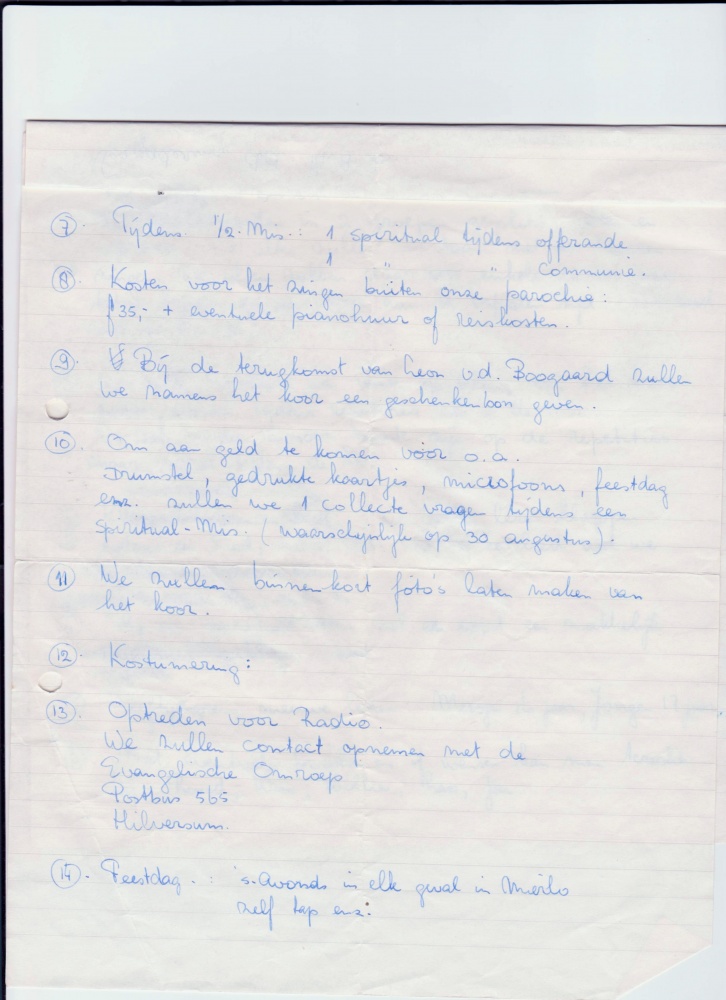 7. Tijdens 1/2. Mis.: 1 spiritual tijdens offerande
1 " " communie.
8. Kosten voor het zingen buiten onze parochie:
f 35,- + eventuele pianohuur of reiskosten.
9. Bij de terugkomst van Leon v.d. Boogaard zullen
we namens het koor een geschenkenbon geven.
10. Om aan geld te komen voor o.a.
drumstel, gedrukte kaartjes, microfoons, feestdag
enz. zullen we 1 collecte vragen tijdens een
Spiritual-Mis. (waarschijnlijk op 30 augustus).
11. We zullen binnenkort foto's laten maken van
het koor.
12. Kostumering:
13. Optreden voor Radio.
We zullen contact opnemen met de
Evangelische Omroep
Postbus 565
Hilversum.
14. Feestdag.: 's-Avonds in elk geval in Mierlo
zelf tap enz.